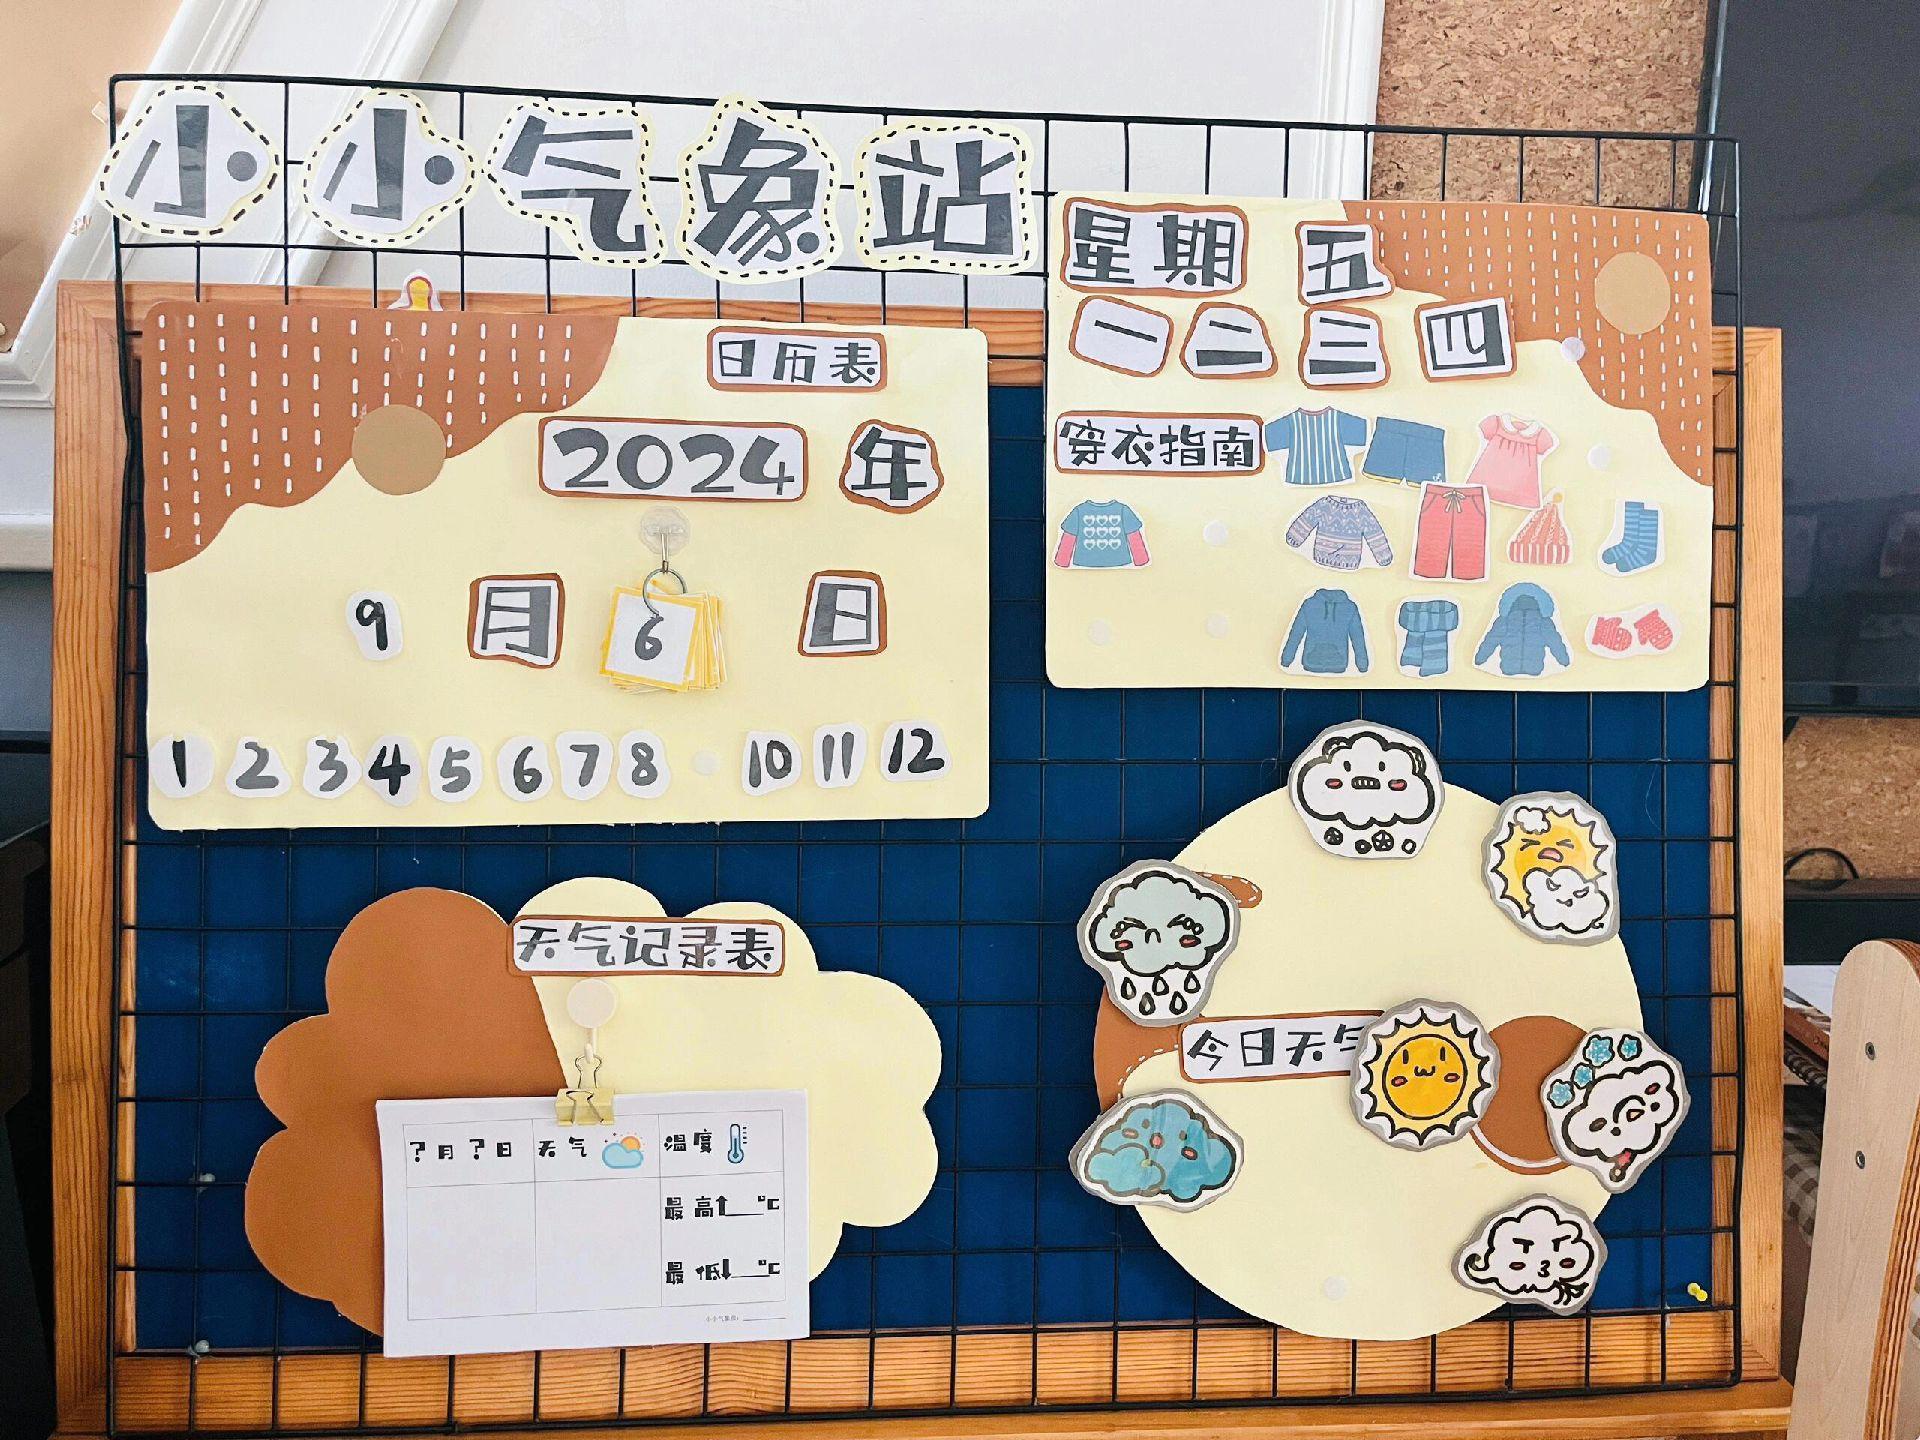 小小气象站
日历表
2024 年
9 月 6 日
1 2 3 4 5 6 7 8 10 11 12
星期 五
一 二 三 四
穿衣指南
天气记录表
?月?日 天气 温度
最高↑__°C
最低↓__°C
今日天气